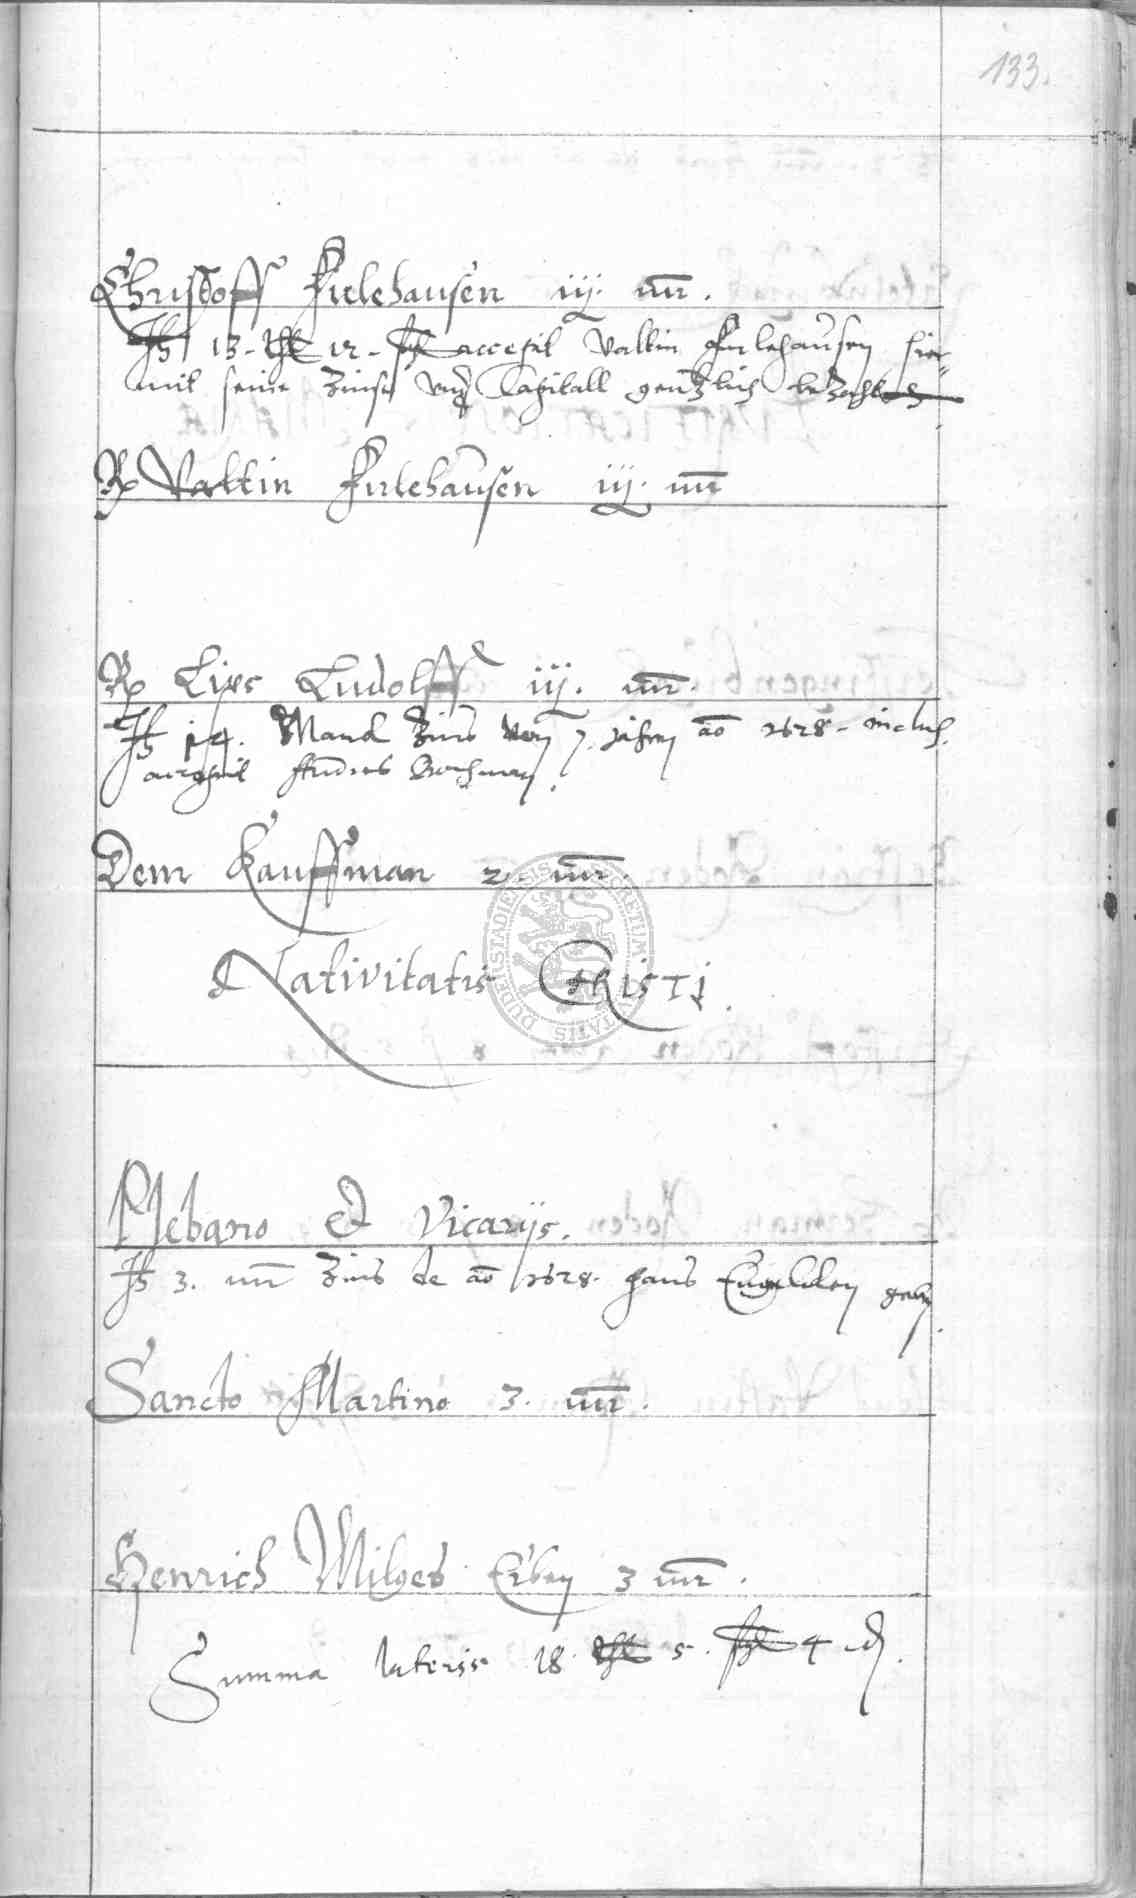 133.
Christoff Firlehausen iij. mr.
It 13 thl 12 ßl accepit Valtin Firlehausen hier-
mit seine Zinse und Capitall gentzlich bezahlt
Rp Valtin Firlehausen iij. mr
Rp Lips Ludolff iij. mr.
It 14. Marck Zins von 7. jahren ao 1628. inclus.
accepit Andres
Dem Kauffman 2. mr.
Nativitatis Christi.
Plebano et Vicarijs.
It 3. mr Zins de ao 1628. Hans geben.
Sancto Martino 3. mr.
Henrich Milges Erben 3 mr.
Summa lateris 18. thl 5. ßl 4 d.
SECRETUM CIVITATIS DUDERSTADIENSIS